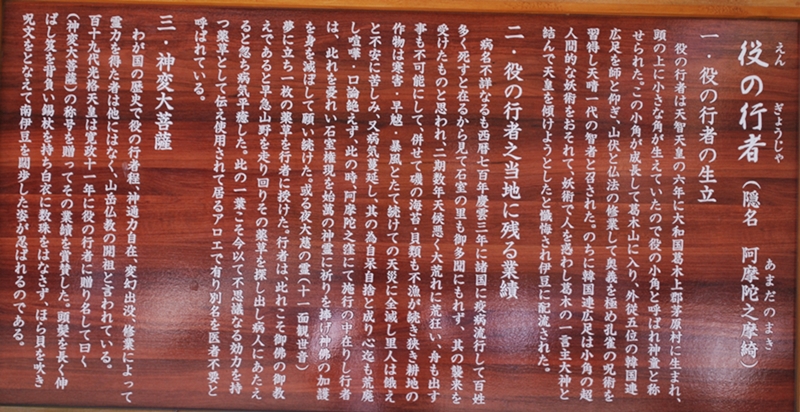 えん ぎょうじゃ あまだのまき
役の行者（隠名 阿摩陀之摩綺）
一．役の行者の生立
役の行者は天智天皇の六年に大和国葛木上郡茅原村に生まれ、
頭の上に小さな角が生えていたので役の小角と呼ばれ神童と称
せられた。この小角が成長して葛木山に入り、外従五位の韓国連
広足を師と仰ぎ、山伏と仏法の修業して奥義を極め孔雀の呪術を
習得し天晴一代の智者を召された。のちに韓国連広足は小角の超
人間的な妖術をおそれて、妖術で人々を惑わし葛木の一言主大神と
結んで天皇を傾けようとしたと懺悔され伊豆に配流された。
二．役の行者之当地に残る業績
病名不詳なるも西暦七百年慶雲三年に諸国に疫病流行して百姓
多く死すと在るから見て石室の里も御多聞にもれず、其の襲来を
受けたものと思われ、二期数年天候悪く大荒れに荒狂い、舟も出す
事も不可能にして、併せて磯の海苔・貝類も不漁が続き狭き耕地の
作物は冷害・旱魃・暴風とたて続けての天災に全滅し里人は餓え
と不安に苦しみ、又病気蔓延し、其の為自呆自捨と成り心迄も荒廃
し喧嘩・口論絶えず、此の時、阿摩陀之窪にて施行の中在りし行者
は、此れを憂れい石室権現を始萬の神霊に祈りを捧げ神佛の加護
を身を滅ぼして願い続けた。或る夜大慈の霊（十一面観世音）
夢に立ち一枚の薬草を行者に授けた。行者は、此れこそ御佛の御教
えであると早急山野を走り回りその薬草を探し出し病人にあたえ
ると忽ち病気平癒した。此の一葉こそ今以て不思議なる効力を持
つ薬草として伝え使用されて居るアロエで有り別名を医者不要と
呼ばれている。
三．神変大菩薩
わが国の歴史で役の行者程、神通力自在、変幻出没、修業によって
霊力を得た者は他にはなく、山岳仏教の開祖と言われている。
百十九代光格天皇は寛政十一年に役の行者に贈り名して曰く
（神変大菩薩）の称号を贈ってその業績を賞賛した。頭髪を長く伸
ばし笈を背負い錫杖を持ち白衣に数珠をはなさず、ほら貝を吹き
呪文をとなえて、南伊豆を闊歩した姿が忍ばれるのである。